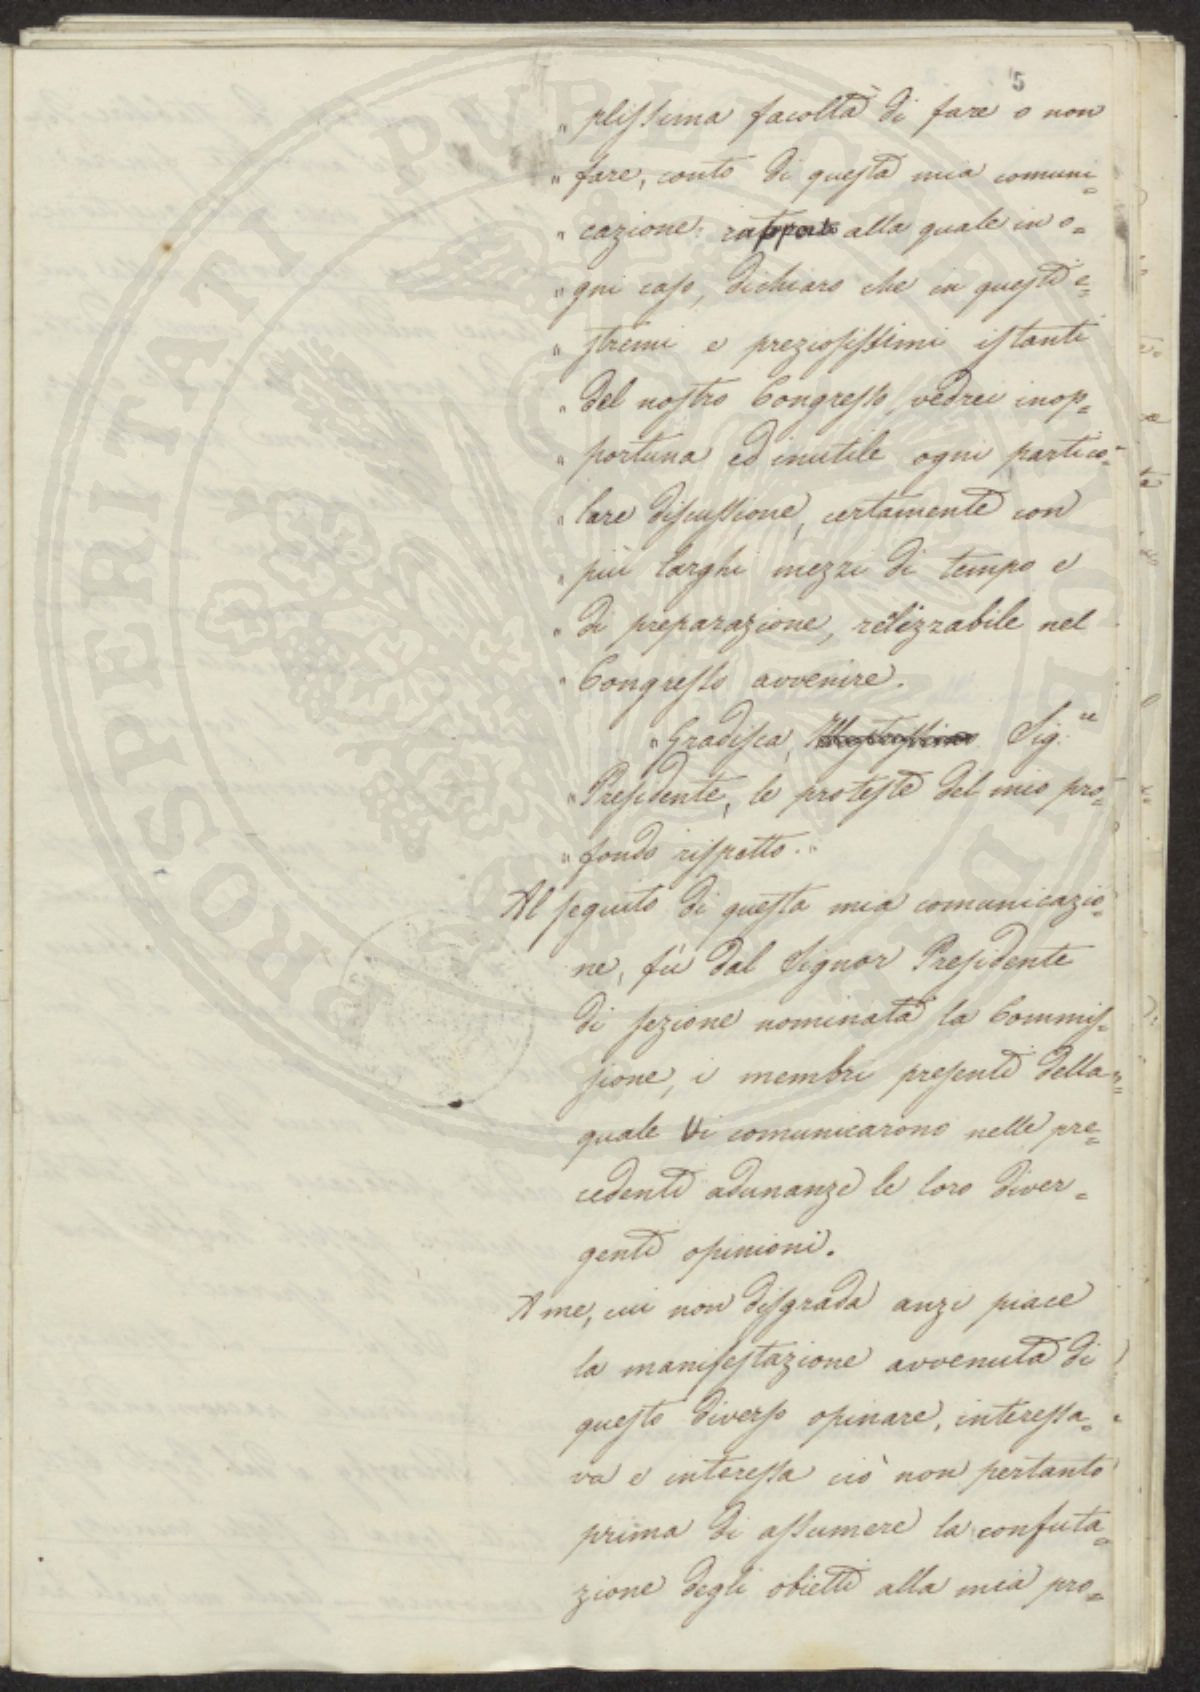 5
" plissima facoltà di fare o non
" fare, conto di questa mia comuni=
" cazione: alla quale in o=
" gni caso, dichiaro che in questi e=
" stremi e preziosissimi istanti
" del nostro Congresso, vedrei inop=
" portuna ed inutile ogni partico=
" lare discussione, certamente con
" più larghi mezzi di tempo e
" di preparazione, relizzabile nel
" Congresso avvenire.
" Gradisca, Sig.re
" Presidente, le proteste del mio pro=
" fondo rispetto. "
Al seguito di questa mia comunicazio=
ne, fù dal Signor Presidente
di sezione nominata la Commis=
sione, i membri presenti della=
quale Vi comunicarono nelle pre=
cedenti adunanze le loro diver=
genti opinioni.
A me, cui non disgrada anzi piace
la manifestazione avvenuta di
questo diverso opinare, interessa=
va e interessa ciò non pertanto
prima di assumere la confuta=
zione degli obietti alla mia pro=
PROSPERITATI PUBLICAE AUGENDAE